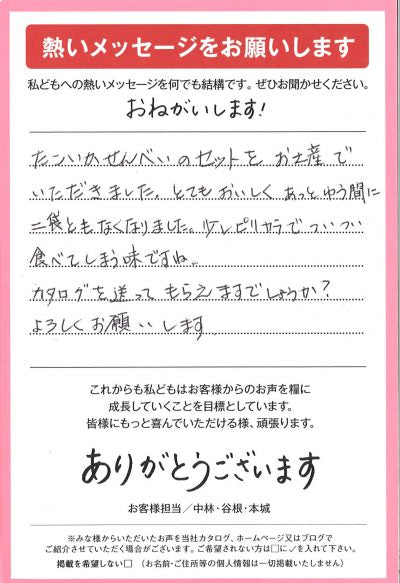 熱いメッセージをお願いします
私どもへの熱いメッセージを何でも結構です。ぜひお聞かせください。
おねがいします!
たこいかせんべいのセットを お土産で
いただきました。とてもおいしく あっとゆう間に
二袋ともなくなりました。少しピリカラで ついつい
食べてしまう味ですね。
カタログを送って もらえますでしょうか?
よろしくお願いします
これからも私どもはお客様からのお声を糧に
成長していくことを目標としています。
皆様にもっと喜んでいただける様、頑張ります。
ありがとうございます
お客様担当／中林・谷根・本城
※みな様からいただいたお声を当社カタログ、ホームページ又はブログで
ご紹介させていただく場合がございます。ご希望されない方は□に✓を入れて下さい。
掲載を希望しない□ （お名前・ご住所等の個人情報は一切掲載いたしません）